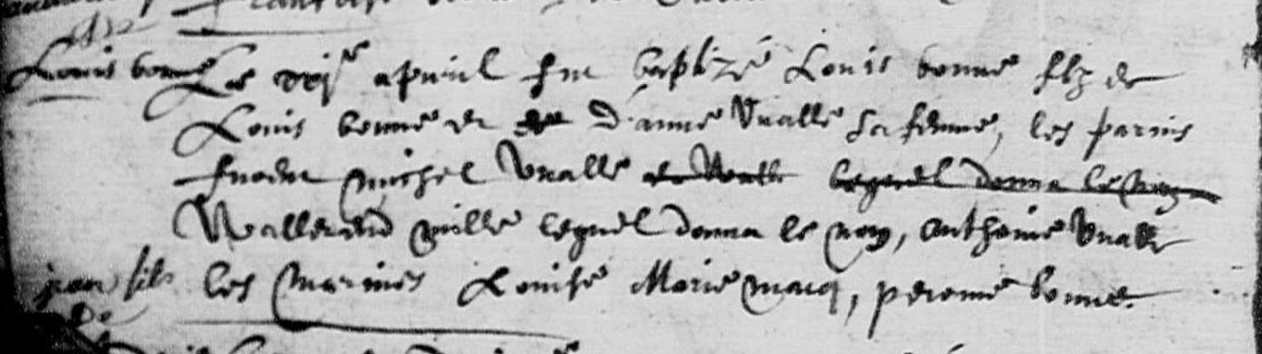 Louis bonne
Le xxj^e apvril fut baptizé Louis bonne filz de
Louis bonne et de d'anne Vualle sa femme, les parins
furent michel Vualle lequel donna le nom
Wallerand mille lequel donna le nom, anthoine Vualle
jean fils
les marines Louise Marie macq, peronne bonne.